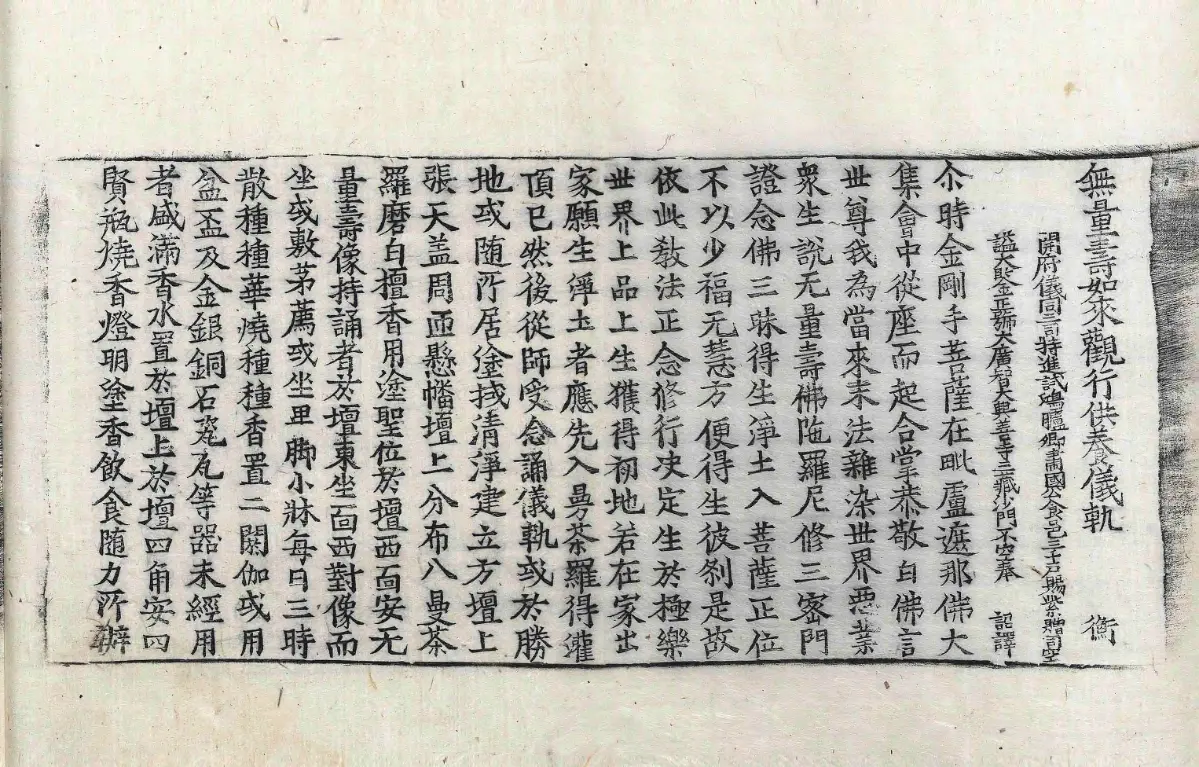 無量壽如來觀行供養儀軌 衡
開府儀同三司特進試鴻臚卿肅國公食邑三千戶賜紫贈司空
謚大鑒正號大廣智大興善寺三藏沙門不空奉 詔譯
尒時金剛手菩薩在毗盧遮那佛大
集會中從座而起合掌恭敬白佛言
世尊我為當來末法雜染世界惡業
衆生說无量壽佛陁羅尼修三密門
證念佛三昧得生淨土入菩薩正位
不以少福无慧方便得生彼刹是故
依此教法正念修行决定生於極樂
世界上品上生獲得初地若在家出
家願生淨土者應先入曼茶羅得灌
頂已然後從師受念誦儀軌或於勝
地或随所居塗拭清淨建立方壇上
張天盖周匝懸幡壇上分布八曼茶
羅磨白檀香用塗聖位於壇西面安无
量壽像持誦者於壇東坐面西對像而
坐或敷茅薦或坐卑脚小牀每日三時
散種種華燒種種香置二閼伽或用
盆盃及金銀銅石瓷瓦等器未經用
者盛滿香水置於壇上於壇四角安四
賢瓶燒香燈明塗香飲食随力所辦